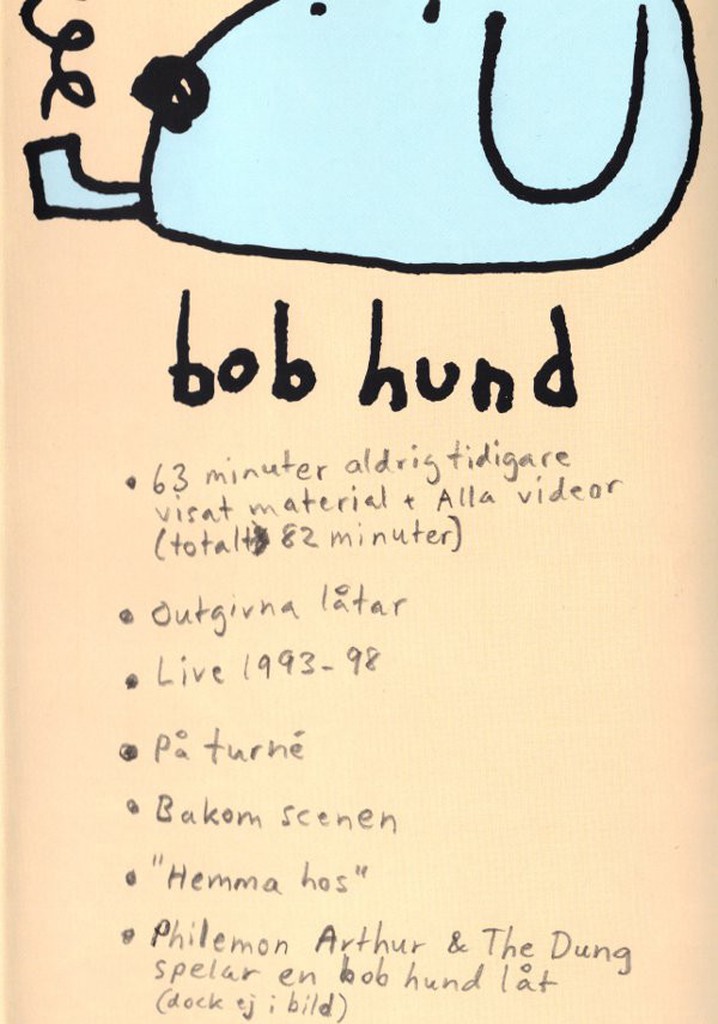 bob hund
• 63 minuter aldrig tidigare
visat material + Alla videor
(totalt 82 minuter)
• Outgivna låtar
• Live 1993-98
• På turné
• Bakom scenen
• "Hemma hos"
• Philemon Arthur & The Dung
spelar en bob hund låt
(dock ej i bild)